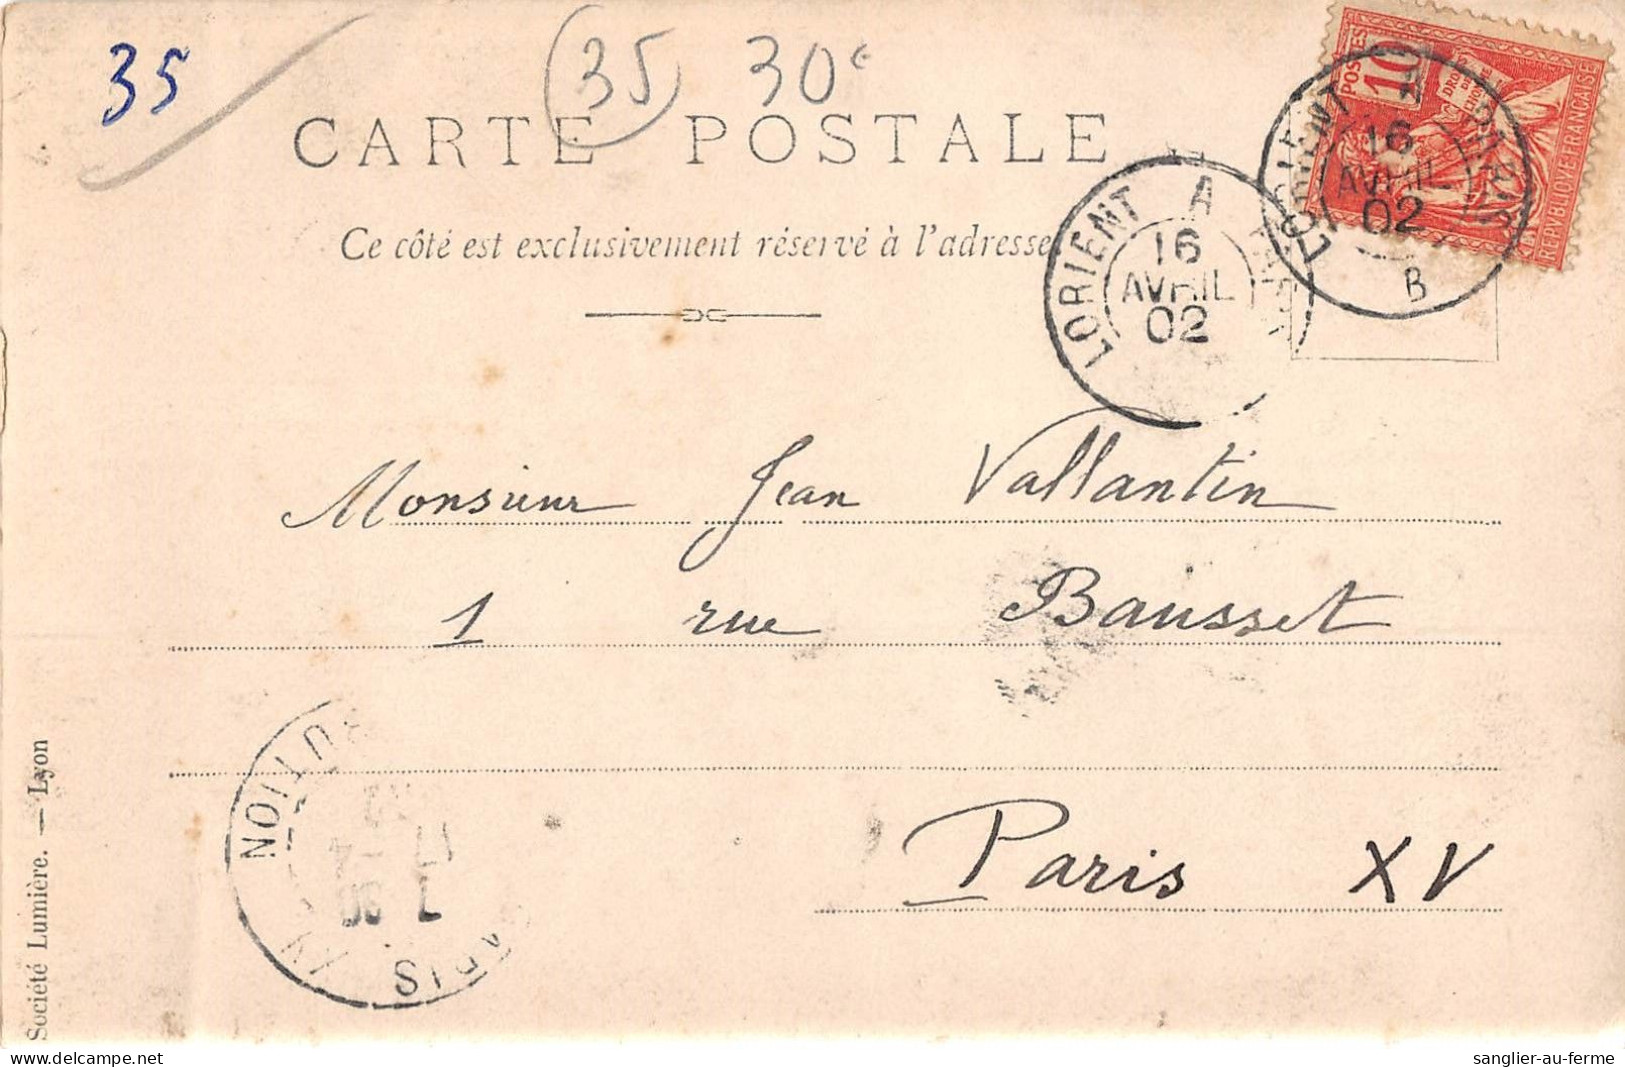 35
35 30c
CARTE POSTALE
Ce côté est exclusivement réservé à l'adresse
POSTES 10
DROITS DE L'HOMME
REPVBLIQVE FRANÇAISE
LORIENT
16
AVRIL
02
B
LORIENT A
16
AVRIL
02
Monsieur Jean Vallantin
1 rue Bausset
Paris XV
PARIS
17
Société Lumière. — Lyon
www.delcampe.net
sanglier-au-ferme